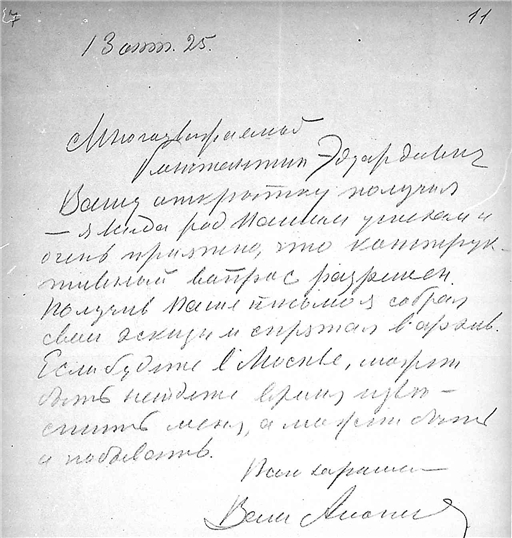 27 11
13 окт. 25.
Многоуважаемый
Константин Эдуардович
Вашу открытку получил
— я всегда рад Вашим успехам и
очень приятно, что конструк-
тивный вопрос разрешен.
Получив Ваше письмо я собрал
свои эскизы и спрятал в архив.
Если будете в Москве, может
быть найдете время
меня, а может быть
и побывать.
Ваш